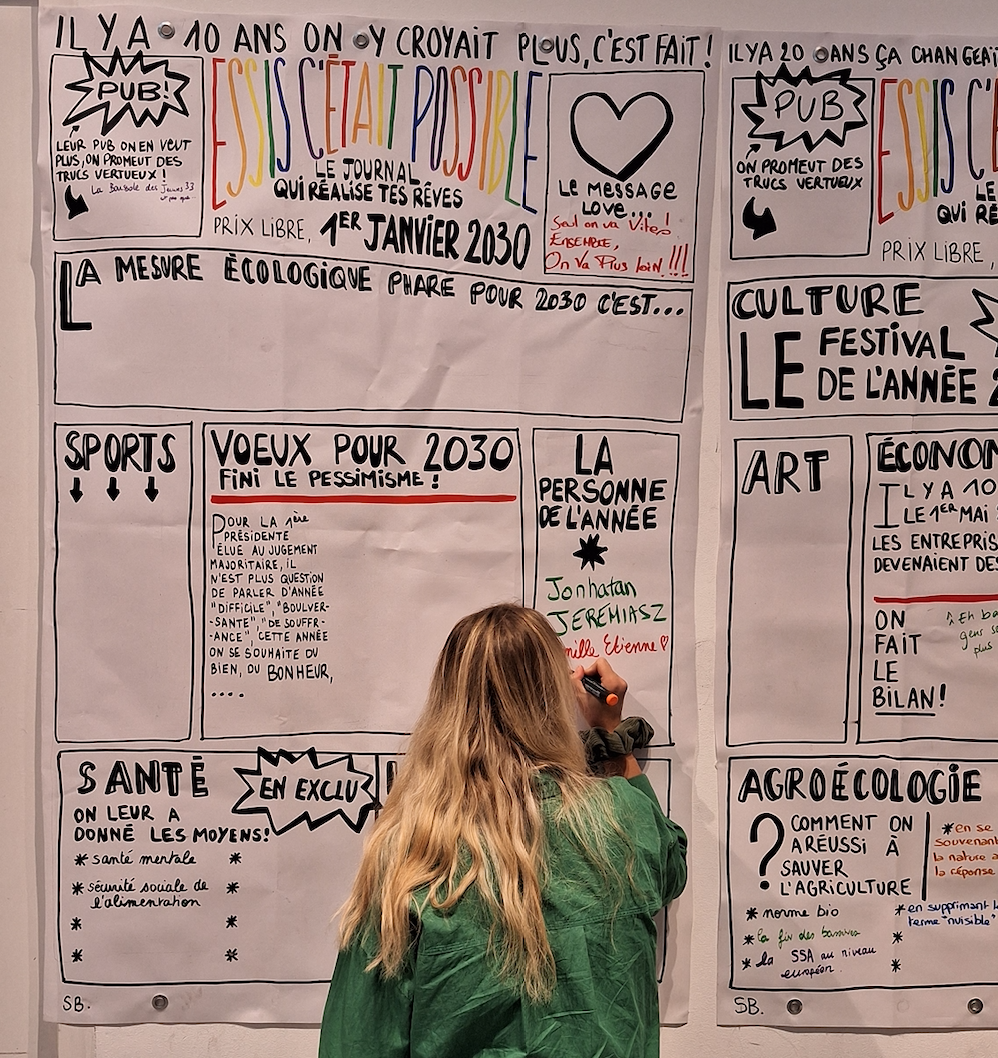 IL Y A 10 ANS ON Y CROYAIT PLUS, C'EST FAIT !
PUB!
LEUR PUB ON EN VEUT
PLUS, ON PROMEUT DES
TRUCS VERTUEUX !
La Boussole des Jeunes 33
ESSIS C'ÉTAIT POSSIBLE
LE JOURNAL
QUI RÉALISE TES RÊVES
PRIX LIBRE, 1ER JANVIER 2030
LE MESSAGE
LOVE...
Seul on va Vite !
ENSEMBLE,
On Va Plus loin !!!
LA MESURE ÉCOLOGIQUE PHARE POUR 2030 C'EST...
SPORTS
VOEUX POUR 2030
FINI LE PESSIMISME !
POUR LA 1ère
PRÉSIDENTE
ÉLUE AU JUGEMENT
MAJORITAIRE, IL
N'EST PLUS QUESTION
DE PARLER D'ANNÉE
"DIFFICILE", "BOULVER-
-SANTE", "DE SOUFFR-
-ANCE", CETTE ANNÉE
ON SE SOUHAITE DU
BIEN, DU BONHEUR,
....
LA
PERSONNE
DE L'ANNÉE
Jonhatan
JEREMIASZ
mille Etienne
SANTÉ
EN EXCLU
ON LEUR A
DONNÉ LES MOYENS!
* santé mentale
*
* sécurité sociale de
l'alimentation
*
*
*
*
*
SB.
IL Y A 20 ANS ÇA CHANGEAIT
PUB
ON PROMEUT DES
TRUCS VERTUEUX
ESSIS C'
LE
QUI RÉ
PRIX LIBRE,
CULTURE
LE FESTIVAL
DE L'ANNÉE 2
ART
ÉCONOM
IL Y A 10
LE 1ER MAI
LES ENTREPRIS
DEVENAIENT DES
ON
FAIT
LE
BILAN!
Eh ba
gens
plus
AGROÉCOLOGIE
? COMMENT ON
A RÉUSSI À
SAUVER
L'AGRICULTURE
* norme bio
* la fin des bassines
* la SSA au niveau
européen.
* en se
souvenant
la nature a
la réponse
* en supprimant l
terme "nuisible"
*
*
SB.